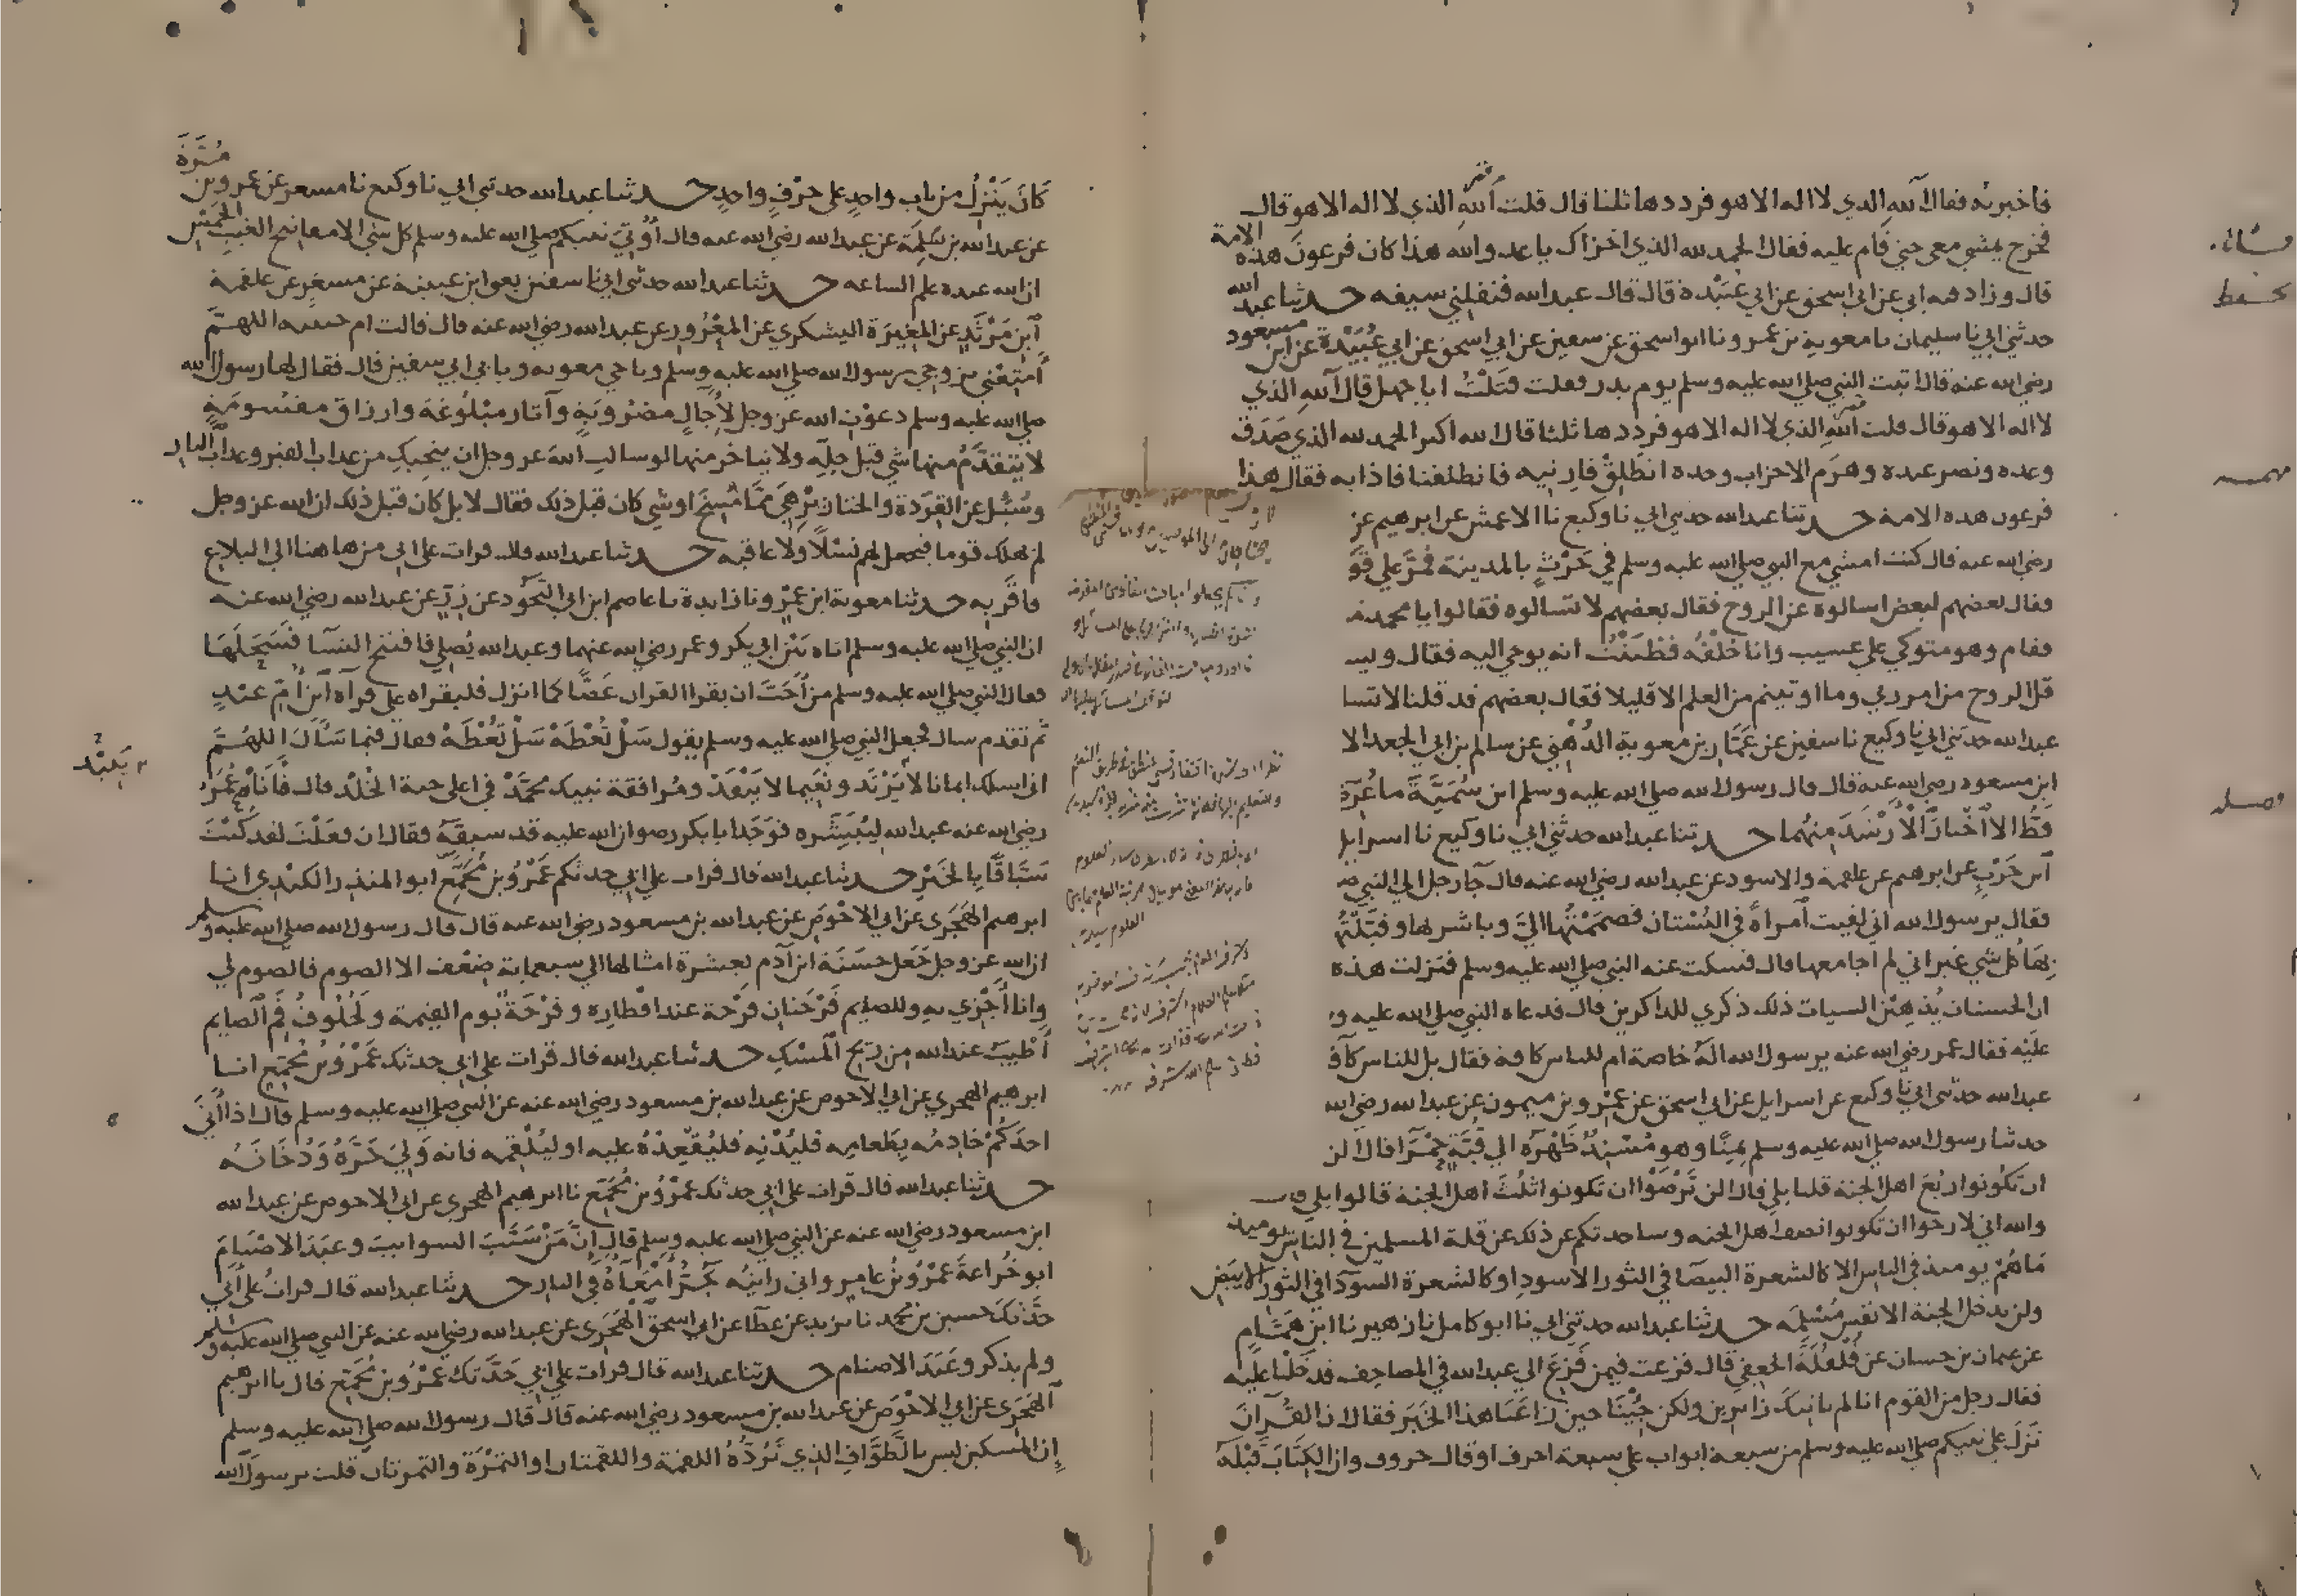 فاخبرته فقال آلله الذي لا اله الا هو فرددها ثلثا قال قلت آلله الذي لا اله الا هو قال
فخرج يمشي معي حتى قام عليه فقال الحمد لله الذي اخزاك يا عدو الله هذا كان فرعون هذه الامة
قال وزاد فيه ابي عن ابي اسحق عن ابي عبيدة قال قال عبد الله فنفلني سيفه حدثنا عبد الله
حدثني ابي نا سليمان نا معوية بن عمرو نا ابو اسحق عن سفين عن ابي اسحق عن ابي عبيدة عن ابن مسعود
رضي الله عنه قال اتيت النبي صلى الله عليه وسلم يوم بدر فقلت قتلت ابا جهل قال آلله الذي
لا اله الا هو قال قلت آلله الذي لا اله الا هو فرددها ثلثا قال الله اكبر الحمد لله الذي صدق
وعده ونصر عبده وهزم الاحزاب وحده انطلق فارنيه فانطلقنا فاذا به فقال هذا
فرعون هذه الامة حدثنا عبد الله حدثني ابي نا وكيع نا الاعمش عن ابرهيم عن
رضي الله عنه قال كنت امشي مع النبي صلى الله عليه وسلم في حرث بالمدينة فمر على قو
فقال بعضهم لبعض اسالوه عن الروح فقال بعضهم لا تسالوه فقالوا يا محمد
فقام وهو متوكي على عسيب وانا خلفه فظننت انه يوحى اليه فقال ويس
قل الروح من امر ربي وما اوتيتم من العلم الا قليلا فقال بعضهم قد قلنا لا تسا
عبد الله حدثني ابي نا وكيع نا سفين عن عمار بن معوية الدهني عن سالم بن ابي الجعد الا
ابن مسعود رضي الله عنه قال قال رسول الله صلى الله عليه وسلم ابن سمية ما عرض
قط الا اختار الارشد منهما حدثنا عبد الله حدثني ابي نا وكيع نا اسرايل
ابن حرب عن ابرهيم عن علقمة والاسود عن عبد الله رضي الله عنه قال جآ رجل الى النبي
فقال يرسول الله اني لقيت امراة في البستان فضممتها الي وباشرها وقبلتها
بها كل شي غير اني لم اجامعها قال فسكت عنه النبي صلى الله عليه وسلم فنزلت هذه
ان الحسنات يذهبن السيات ذلك ذكري للذاكرين قال فدعاه النبي صلى الله عليه و
عليه فقال عمر رضي الله عنه يرسول الله اله خاصة ام للناس كافة فقال بل للناس كاف
عبد الله حدثني ابي نا وكيع عن اسرايل عن ابي اسحق عن عمرو بن ميمون عن عبد الله رضي الله
حدثنا رسول الله صلى الله عليه وسلم بمنا وهو مسند ظهره الى قبة حمرآ قال الن
ان تكونوا ربع اهل الجنة قلنا بلي قال الن ترضوا ان تكونوا ثلث اهل الجنة قالوا بلي
والله اني لارجوا ان تكونوا نصف اهل الجنه وساحدثكم عن ذلك عن قلة المسلمين في الناس يوميذ
ما هم يوميذ في الناس الا كالشعرة البيضا في الثور الاسود او كالشعرة السودآ في الثور الابيض
ولن يدخل الجنة الا نفس مسلمه حدثنا عبد الله حدثني ابي نا ابو كامل نا زهير نا ابن همام
عن عمان بن حسان عن فلفلة الجعفي قال فزعت فيمن فزع الى عبد الله في المصاحف فدخلنا عليه
فقال رجل من القوم انا لم ناتيك زايرين ولكن جينا حين راعنا هذا الخبر فقال ان القرآن
نزل على نبيكم صلى الله عليه وسلم من سبعة ابواب على سبعة احرف او قال حروف وان الكتاب قبله
كان ينزل من باب واحد على حرف واحد حدثنا عبد الله حدثني ابي نا وكيع نا مسعر عن عمرو بن مرة
عن عبد الله بن سلمة عن عبد الله رضي الله عنه قال اوتي نبيكم صلى الله عليه وسلم كل شي الا مفاتيح الغيب الخمس
ان الله عنده علم الساعه حدثنا عبد الله حدثني ابي نا سفين يعني ابن عيينة عن مسعر عن علقمة
ابن مرثد عن المغيرة اليشكري عن المعرور عن عبد الله رضي الله عنه قال قالت ام حبيبه اللهم
امتعني بزوجي رسول الله صلى الله عليه وسلم وباخي معويه وبابي ابي سفين قال فقال لها رسول الله
صلى الله عليه وسلم دعوت الله عز وجل لآجال مضروبة وآثار مبلوغة وارزاق مقسومة
لا يتقدم منها شي قبل حله ولا يتاخر منها لو سالت الله عز وجل ان ينجيك من عذاب القبر وعذاب النار
وسئل عن القردة والخنازير هي مما مسخ او شي كان قبل ذلك فقال لا بل كان قبل ذلك ان الله عز وجل
لم يهلك قوما فيجعل لهم نسلا ولا عاقبه حدثنا عبد الله قال قرات على ابي من هاهنا الى البلاغ
فاقر به حدثنا معوية ابن عمرو نا زايدة نا عاصم ابن ابي النجود عن زر عن عبد الله رضي الله عنه
ان النبي صلى الله عليه وسلم اتاه بين ابي بكر وعمر رضي الله عنهما وعبد الله يصلي فافتتح النسا فسحلها
فقال النبي صلى الله عليه وسلم من احب ان يقرا القران غضا كما انزل فليقراه على قراة ابن ام عبد
ثم تقدم سال فجعل النبي صلى الله عليه وسلم يقول سل تعطه سل تعطه فقال فيما سال اللهم
اني اسلك ايمانا لا يرتد ونعيما لا ينفد ومرافقة نبيك محمد في اعلى جنة الخلد قال فاتاه عمر
رضي الله عنه عبد الله ليبشره فوجد ابا بكر رضوان الله عليه قد سبقه فقال ان فعلت لقد كنت
سباقا بالخير حدثنا عبد الله قال قرات على ابي حدثكم عمرو بن مجمع ابو المنذر الكندي انا
ابرهيم الهجري عن ابي الاحوص عن عبد الله بن مسعود رضي الله عنه قال قال رسول الله صلى الله عليه وسلم
ان الله عز وجل جعل حسنة ابن آدم بعشرة امثالها الى سبعماية ضعف الا الصوم فالصوم لي
وانا اجزي به وللصايم فرحتان فرحة عند افطاره وفرحة يوم القيمة ولخلوف فم الصايم
اطيب عند الله من ريح المسك حدثنا عبد الله قال قرات على ابي حدثك عمرو بن مجمع انا
ابرهيم الهجري عن ابي الاحوص عن عبد الله بن مسعود رضي الله عنه عن النبي صلى الله عليه وسلم قال اذا اتى
احدكم خادمه بطعامه فليدنه فليقعده عليه او ليلقمه فانه ولي حره ودخانه
حدثنا عبد الله قال قرات على ابي حدثك عمرو بن مجمع نا ابرهيم الهجري عن ابي الاحوص عن عبد الله
ابن مسعود رضي الله عنه عن النبي صلى الله عليه وسلم قال ان من سيب السوايب وعبد الاصنام
ابو خزاعة عمرو بن عامر واني رايته يجر امعآه في النار حدثنا عبد الله قال قرات على ابي
حدثك حسين بن محمد نا يزيد عن عطآ عن ابي اسحق الهجري عن عبد الله رضي الله عنه عن النبي صلى الله عليه وسلم
ولم يذكر وعبد الاصنام حدثنا عبد الله قال قرات على ابي حدثك عمرو بن مجمع قال نا ابرهيم
الهجري عن ابي الاحوص عن عبد الله بن مسعود رضي الله عنه قال قال رسول الله صلى الله عليه وسلم
ان المسكين ليس بالطواف الذي ترده اللقمة واللقمتان او التمرة والتمرتان قلت يرسول الله